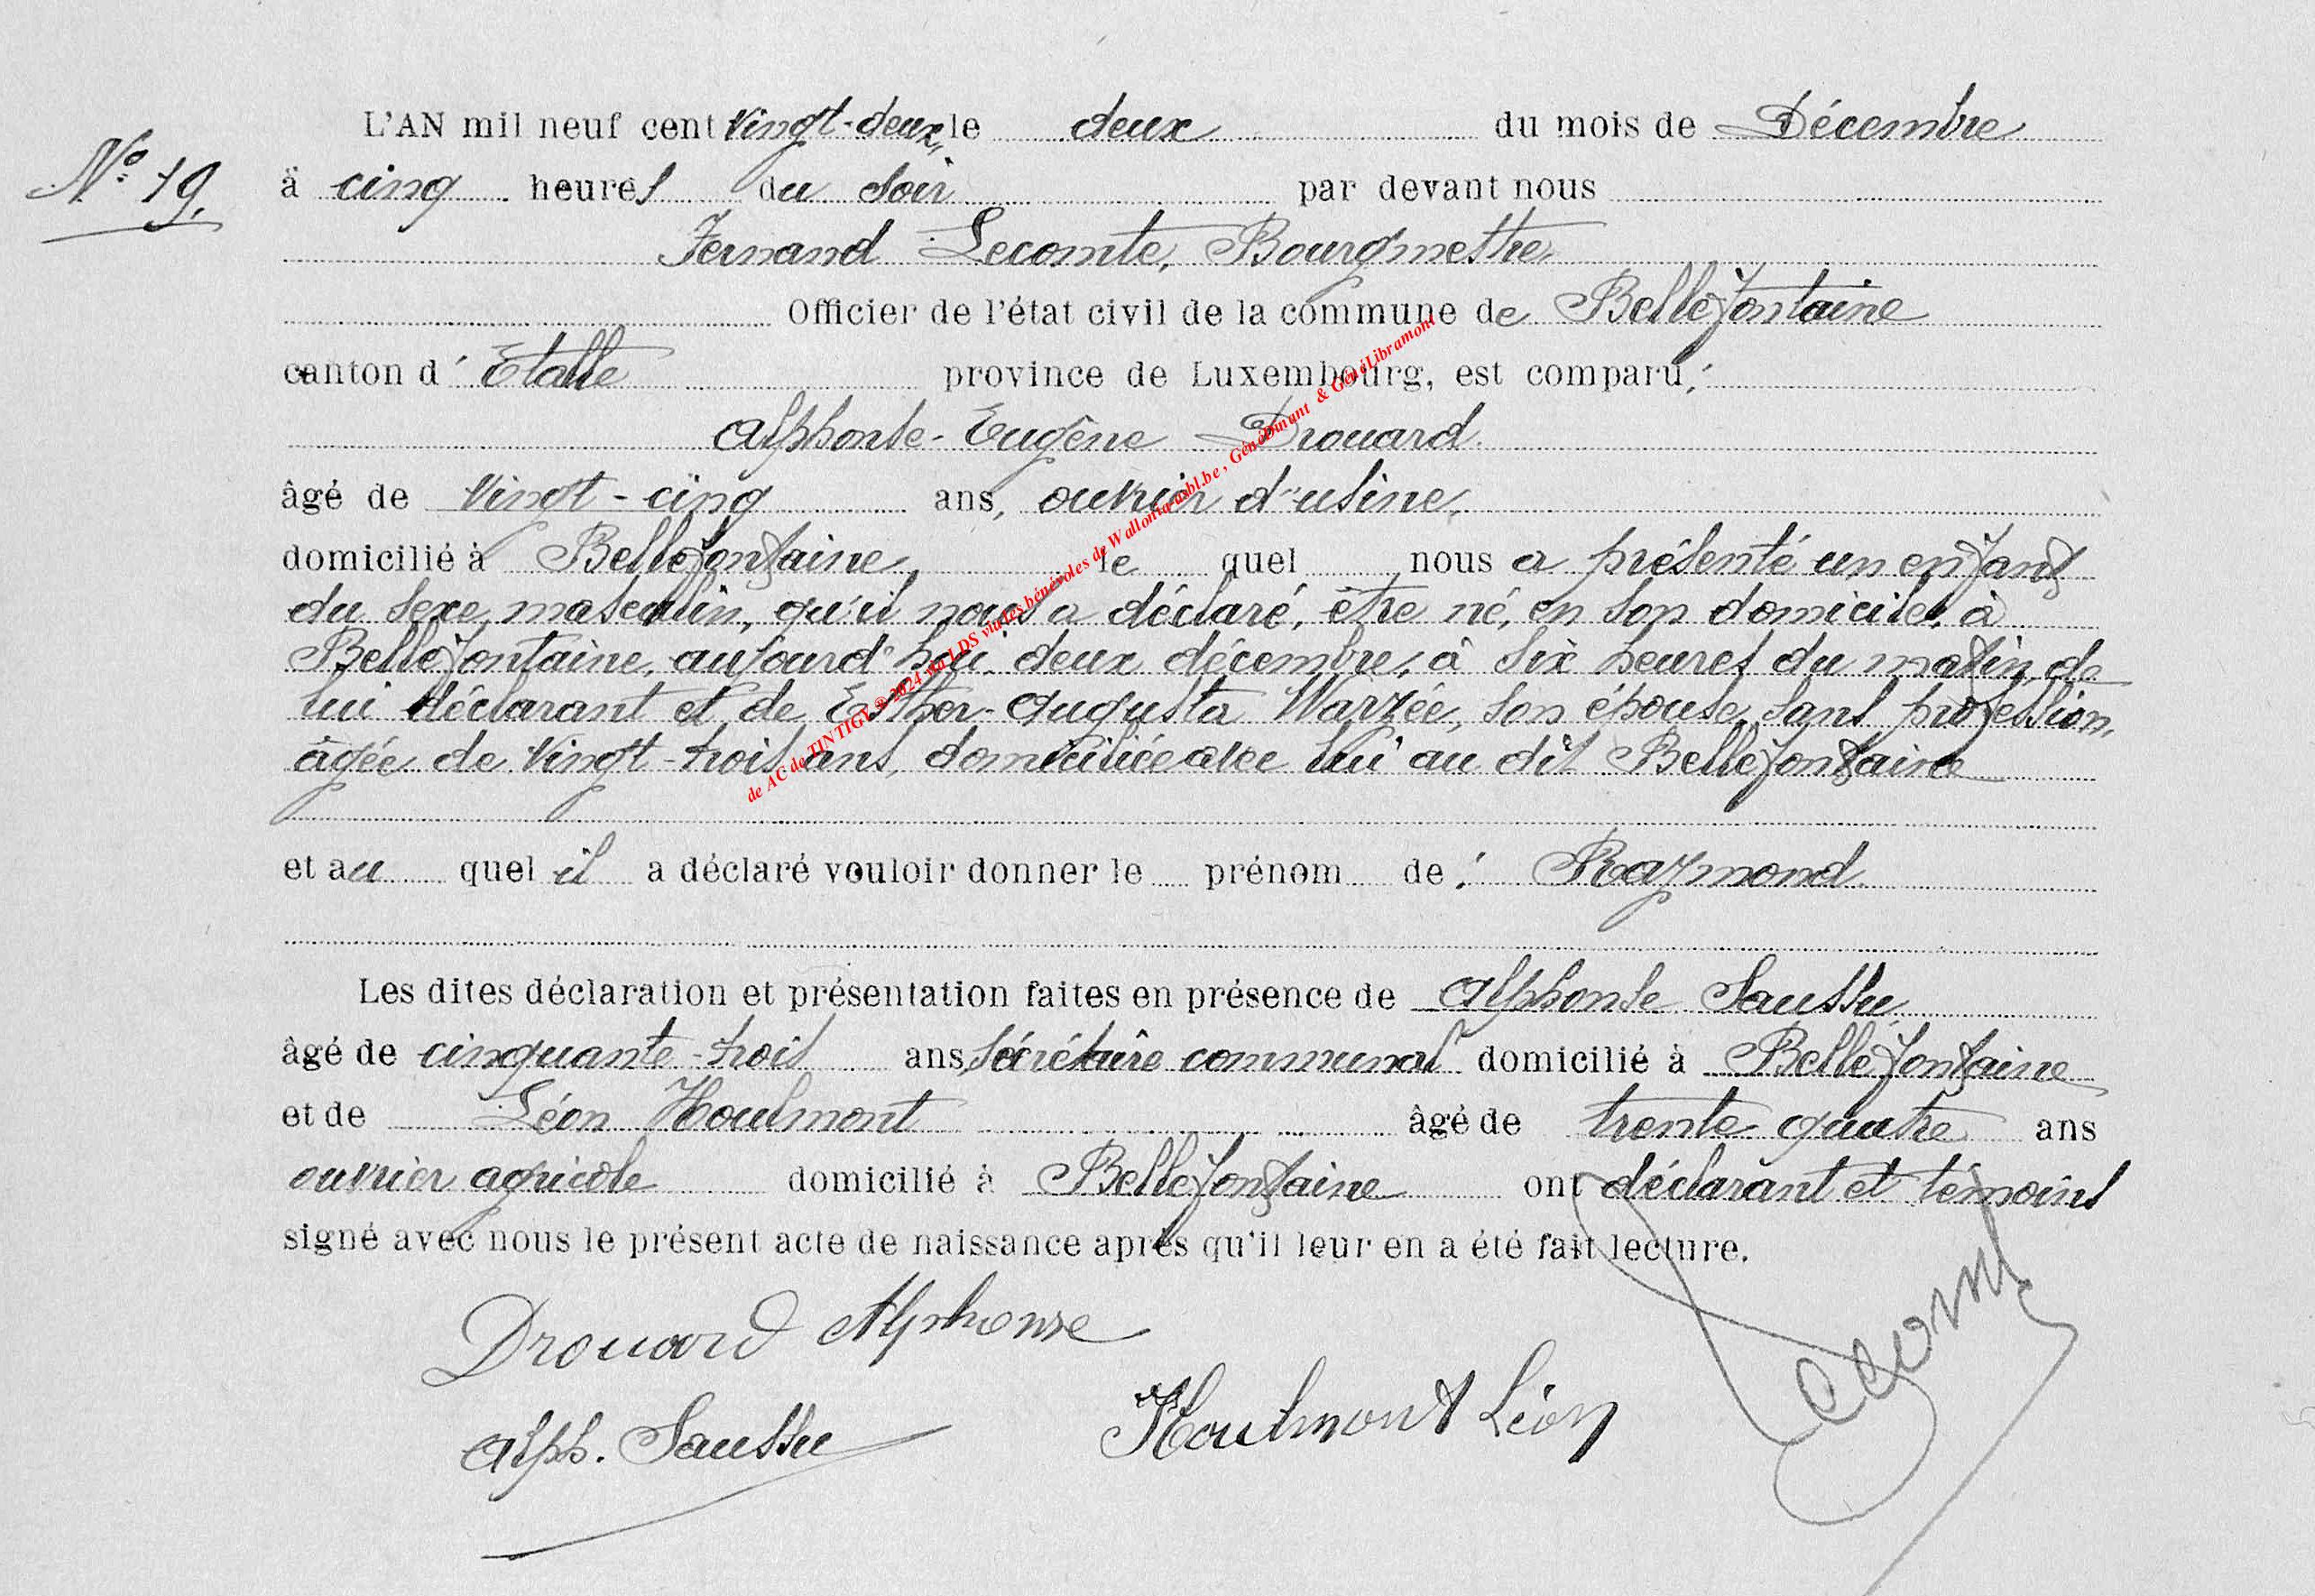 L'AN mil neuf cent vingt-deux, le deux du mois de Décembre
N° 19.
à cinq heures du soir par devant nous
Fernand Lecomte, Bourgmestre,
Officier de l'état civil de la commune de Bellefontaine
canton d'Etalle province de Luxembourg, est comparu:
Alphonse-Eugène Drouard
âgé de vingt-cinq ans, ouvrier d'usine,
domicilié à Bellefontaine, le quel nous a présenté un enfant
du sexe masculin, qu'il nous a déclaré, être né, en son domicile, à
Bellefontaine, aujourd'hui, deux décembre, à six heures du matin, de
lui déclarant et de Esther-Augusta Warzée, son épouse, sans profession,
âgée de vingt-trois ans, domiciliée avec lui au dit Bellefontaine
et au quel il a déclaré vouloir donner le prénom de: Raymond.
Les dites déclaration et présentation faites en présence de Alphonse Saussu
âgé de cinquante-trois ans, sécrétaire communal domicilié à Bellefontaine
et de Léon Houlmont âgé de trente quatre ans
ouvrier agricole domicilié à Bellefontaine ont déclarant et témoins
signé avec nous le présent acte de naissance après qu'il leur en a été fait lecture.
Drouard Alphonse
Lecomte
Alph. Saussu
Houlmont Léon
de AC de TINTIGNY © 2024 via LDS via les bénévoles de Wallonia-asbl.be, GénéDinant & GénéLibramont